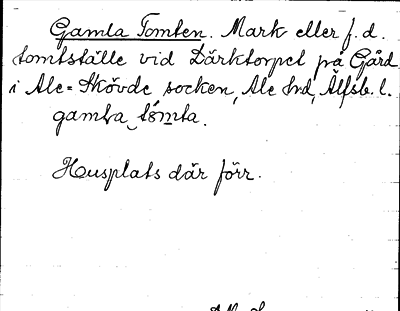 Gamla Tomten. Mark eller f. d.
tomtställe vid Därktorpet på Gård
i Ale-Skövde socken, Ale hd, Älfsb. l.
gamḷa tòmta.
Husplats där förr.